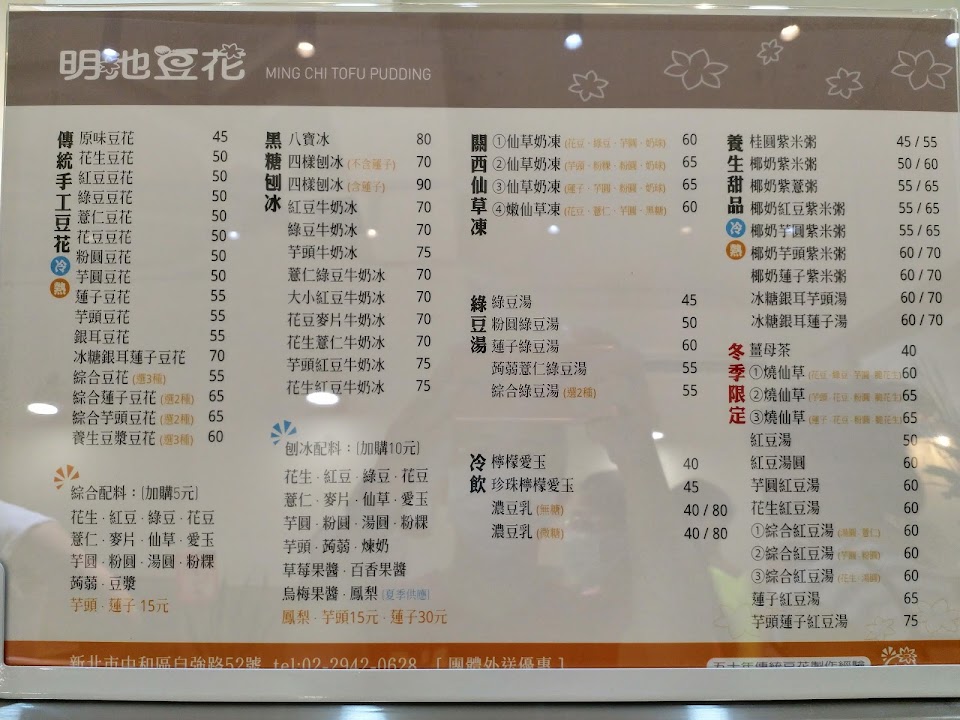 明池豆花 MING CHI TOFU PUDDING
傳統手工豆花 冷 熱
原味豆花 45
花生豆花 50
紅豆豆花 50
綠豆豆花 50
薏仁豆花 50
花豆豆花 50
粉圓豆花 50
芋圓豆花 50
蓮子豆花 55
芋頭豆花 55
銀耳豆花 55
冰糖銀耳蓮子豆花 70
綜合豆花(選3種) 55
綜合蓮子豆花(選2種) 65
綜合芋頭豆花(選2種) 65
養生豆漿豆花(選3種) 60
綜合配料：(加購5元)
花生．紅豆．綠豆．花豆
薏仁．麥片．仙草．愛玉
芋圓．粉圓．湯圓．粉粿
蒟蒻．豆漿
芋頭．蓮子 15元
黑糖刨冰
八寶冰 80
四樣刨冰(不含蓮子) 70
四樣刨冰(含蓮子) 90
紅豆牛奶冰 70
綠豆牛奶冰 70
芋頭牛奶冰 75
薏仁綠豆牛奶冰 70
大小紅豆牛奶冰 70
花豆麥片牛奶冰 70
花生薏仁牛奶冰 70
芋頭紅豆牛奶冰 75
花生紅豆牛奶冰 75
刨冰配料：(加購10元)
花生．紅豆．綠豆．花豆
薏仁．麥片．仙草．愛玉
芋圓．粉圓．湯圓．粉粿
芋頭．蒟蒻．煉奶
草莓果醬．百香果醬
烏梅果醬．鳳梨(夏季供應)
鳳梨．芋頭15元．蓮子30元
關西仙草凍
①仙草奶凍(花豆．綠豆．芋圓．奶球) 60
②仙草奶凍(芋頭．粉粿．粉圓．奶球) 65
③仙草奶凍(蓮子．芋圓．粉圓．奶球) 65
④嫩仙草凍(花豆．薏仁．芋圓．黑糖) 60
綠豆湯
綠豆湯 45
粉圓綠豆湯 50
蓮子綠豆湯 60
蒟蒻薏仁綠豆湯 55
綜合綠豆湯(選2種) 55
冷飲
檸檬愛玉 40
珍珠檸檬愛玉 45
濃豆乳(無糖) 40 / 80
濃豆乳(微糖) 40 / 80
養生甜品 冷 熱
桂圓紫米粥 45 / 55
椰奶紫米粥 50 / 60
椰奶紫薏粥 55 / 65
椰奶紅豆紫米粥 55 / 65
椰奶芋圓紫米粥 55 / 65
椰奶芋頭紫米粥 60 / 70
椰奶蓮子紫米粥 60 / 70
冰糖銀耳芋頭湯 60 / 70
冰糖銀耳蓮子湯 60 / 70
冬季限定
薑母茶 40
①燒仙草 60
②燒仙草 65
③燒仙草 65
紅豆湯 50
紅豆湯圓 60
芋圓紅豆湯 60
花生紅豆湯 60
①綜合紅豆湯(湯圓．薏仁) 60
②綜合紅豆湯(芋圓．粉圓) 60
③綜合紅豆湯(花生．湯圓) 60
蓮子紅豆湯 65
芋頭蓮子紅豆湯 75
新北市中和區自強路52號 tel:02-2942-0628 [ 團體外送優惠 ]
五十年傳統豆花製作經驗